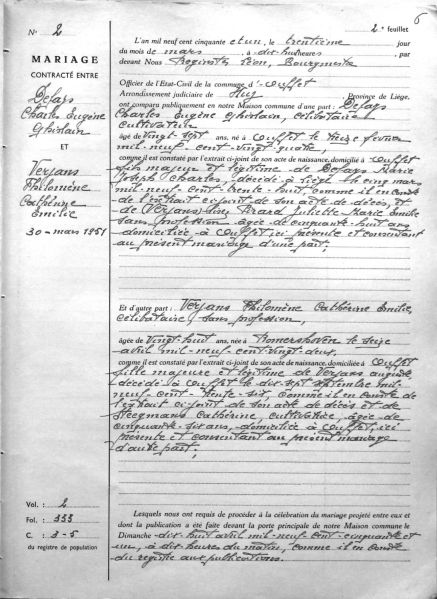 6
N° 2
2e feuillet
MARIAGE
CONTRACTÉ ENTRE
Defays
Charles Eugène
Ghislain
ET
Verjans
Philomène
Cathérine
Emilie
30 - mars 1951
L'an mil neuf cent cinquante et un, le trentième jour
du mois de mars, à dix heures, par
devant Nous Léon, Bourgmestre
Officier de l'Etat-Civil de la commune d'Ouffet
Arrondissement judiciaire de Huy Province de Liège.
ont comparu publiquement en notre Maison commune d'une part : Defays
Charles Eugène Ghislain, célibataire
cultivateur
âgé de vingt-sept ans, né à Ouffet le seize février
mil-neuf-cent-vingt-quatre,
comme il est constaté par l'extrait ci-joint de son acte de naissance, domicilié à Ouffet
fils majeur et légitime de Defays Marie
Joseph Charles, décédé à Liège le cinq mars
mil-neuf-cent-trente-huit, comme il en conste
de l'extrait ci-joint de son acte de décès, et
de Juliette Marie Emilie
sans profession, âgée de cinquante-huit ans
domiciliée à Ouffet, ici présente et consentant
au présent mariage d'une part;
Et d'autre part : Verjans Philomène Cathérine Emilie,
célibataire, sans profession,
âgée de vingt-huit ans, née à Romershoven le seize
avril mil-neuf-cent-vingt-deux,
comme il est constaté par l'extrait ci-joint de son acte de naissance, domiciliée à Ouffet
fille majeure et légitime de Verjans Auguste
décédé à Ouffet le dix-sept septembre mil-
neuf-cent-trente-six, comme il en conste de
l'extrait ci-joint de son acte de décès et de
Steegmans Cathérine, cultivatrice, âgée de
cinquante-six ans, domiciliée à Ouffet, ici
présente et consentant au présent mariage
d'autre part;
Vol. : 2
Fol. : 333
C. : 3-5
du registre de population
Lesquels nous ont requis de procéder à la célébration du mariage projeté entre eux et
dont la publication a été faite devant la porte principale de notre Maison commune le
Dimanche dix-huit avril mil-neuf-cent-cinquante et
un, à dix heures du matin, comme il en conste
du registre aux publications.